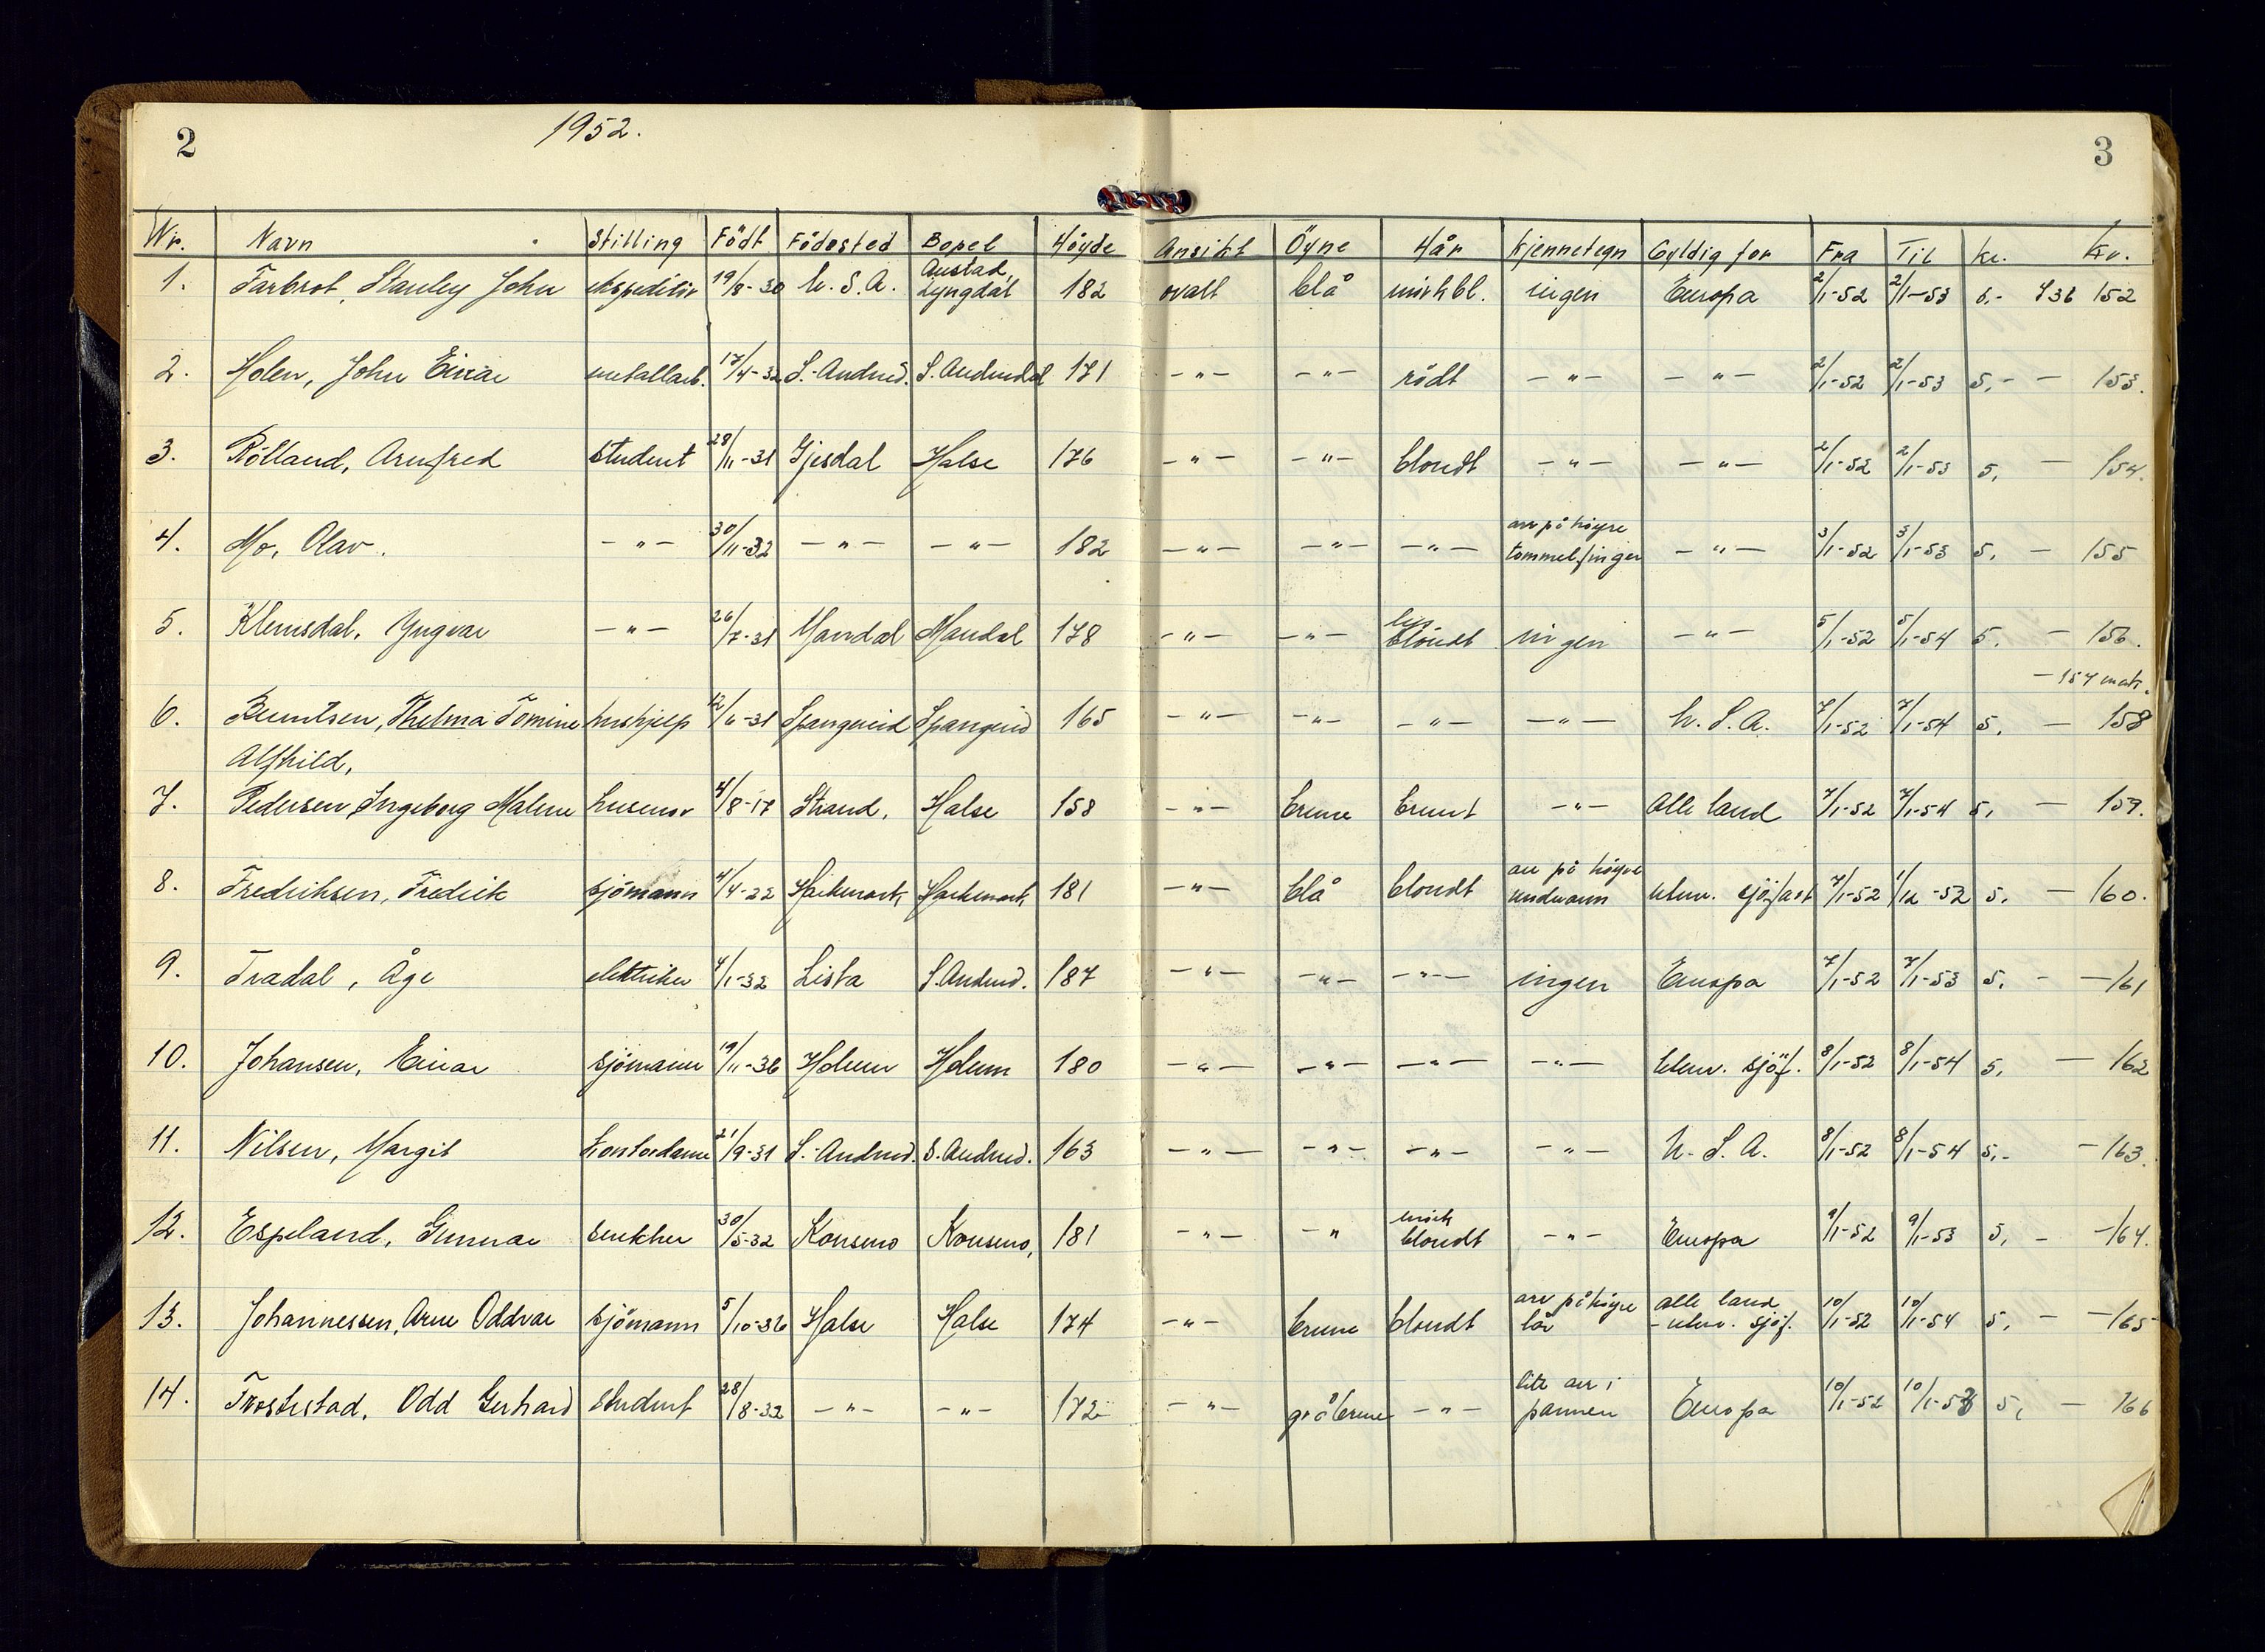 2
1952.
3
Nr. Navn Stilling Född Födested Bopel Höyde Ansikt Öyne Hår Kjennetegn Gyldig for Fra Til Kr. Kv.
Austad,
1. Farbrot, Stanley John ekspeditør 19/8-30 U.S.A. Lyngdal 182 ovalt blå mörkbl. ingen Europa 2/1-52 2/1-53 5,- 436 152
2. Holen, John Einar metallarb. 17/4-32 S.-Audned. S. Audnedal 171 -"- -"- rödt -"- -"- 2/1-52 2/1-53 5,- - 153.
3. Rölland, Arnfred student 28/11-31 Gjesdal Halse 176 -"- -"- blondt -"- -"- 2/1-52 2/1-53 5, - 154.
arr på höyre
4. Mo, Olav. -"- 30/11-32 -"- -"- 182 -"- -"- -"- tommelfinger -"- 3/1-52 3/1-53 5, - 155
lys
5. Klemsdal, Yngvar -"- 26/7-31 Mandal Mandal 178 -"- -"- blondt ingen -"- 5/1-52 5/1-54 5. - 156.
- 157 mak.
6. Berntsen, Thelma Tomine hushjelp 12/6-31 Spangereid Spangereid 165 -"- -"- -"- -"- U.S.A. 7/1-52 7/1-54 5, - 158
Alfhild,
7. Pedersen, Ingeborg Malene husmor 4/8-17 Strand, Halse 158 -"- brune brunt -"- Alle land 7/1-52 7/1-54 5, - 159.
arr på höyre
8. Fredriksen, Fredrik sjömann 4/4-22 Harkmark, Harkmark, 181 -"- blå blondt underarm utenr. sjöfart 7/1-52 1/12-52 5, - 160.
9. Tradal, Åge elektriker 4/1-32 Lista S. Audned. 187 -"- -"- -"- ingen Europa 7/1-52 7/1-53 5, - - 161
10. Johansen, Einar sjömann 19/11-36 Holum Holum 180 -"- -"- -"- -"- Utenr. sjöf. 8/1-52 8/1-54 5, - 162
11. Nilsen, Margit kontordame 21/9-31 S.-Audned. S. Audned. 163 -"- -"- -"- -"- U.S.A. 8/1-52 8/1-54 5,- - 163.
mörk
12. Espeland, Gunnar snekker 30/5-32 Konsmo Konsmo, 181 -"- -" blondt -"- Europa 9/1-52 9/1-53 5, - -164.
arr på höyre alle land
13. Johannessen, Arne Oddvar sjömann 5/10-36 Halse Halse 174 -"- brune blondt lår - utenr. sjöf. 10/1-52 10/1-54 5, - -165
lite arr i
14. Trostestad, Odd Gerhard student 28/8-32 -"- -"- 172 -"- gråbrune -"- pannen Europa 10/1-52 10/1-53 5, - 166